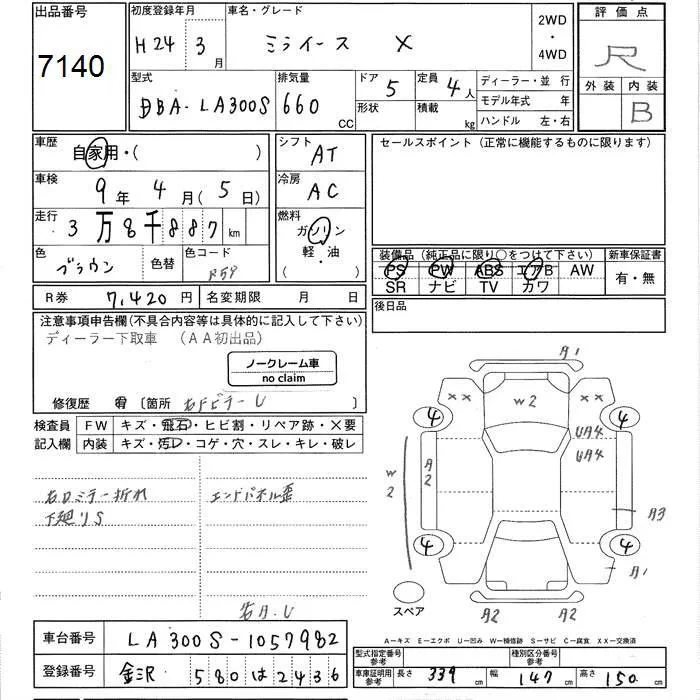 出品番号
7140
初度登録年月
H24 3月
車名・グレード
ミライース X
2WD
・
4WD
評価点
R
外装 内装
B
型式
DBA-LA300S
排気量
660 CC
ドア 5
形状
定員 4人
積載 kg
ディーラー・並行
モデル年式 年
ハンドル 左・右
車歴
自家用・( )
車検
9年 4月(5日)
走行
3万8千887km
色
ブラウン 色替
色コード
R59
シフト
AT
冷房
AC
燃料
ガソリン
軽・油
( )
セールスポイント(正常に機能するものに限ります)
装備品(純正品に限り○をつけて下さい)
PS PW ABS エアB AW
SR ナビ TV カワ
新車保証書
有・無
R券 7,420円 名変期限 月 日
後日品
注意事項申告欄(不具合内容等は具体的に記入して下さい)
ディーラー下取車 (AA初出品)
ノークレーム車
no claim
修復歴 有 [箇所 右Fピラー U ]
検査員
記入欄
FW キズ・飛石・ヒビ割・リペア跡・X要
内装 キズ・汚レ・コゲ・穴・スレ・キレ・破レ
右Dミラー折れ
下廻りS
エンドパネル歪
A1
XX
W2
XX
4
4
UA4
UA4
W2
A2
A3
4
4
A1
A2
A2
スペア
A-キズ E-エクボ U-凹み W-補修跡 S-サビ C-腐食 XX-交換済
車台番号 LA300S-1057982
登録番号 金沢 580は2436
型式指定番号
参考
種別区分番号
参考
車庫証明用
参考
長さ 339 cm 幅 147 cm 高さ 150 cm